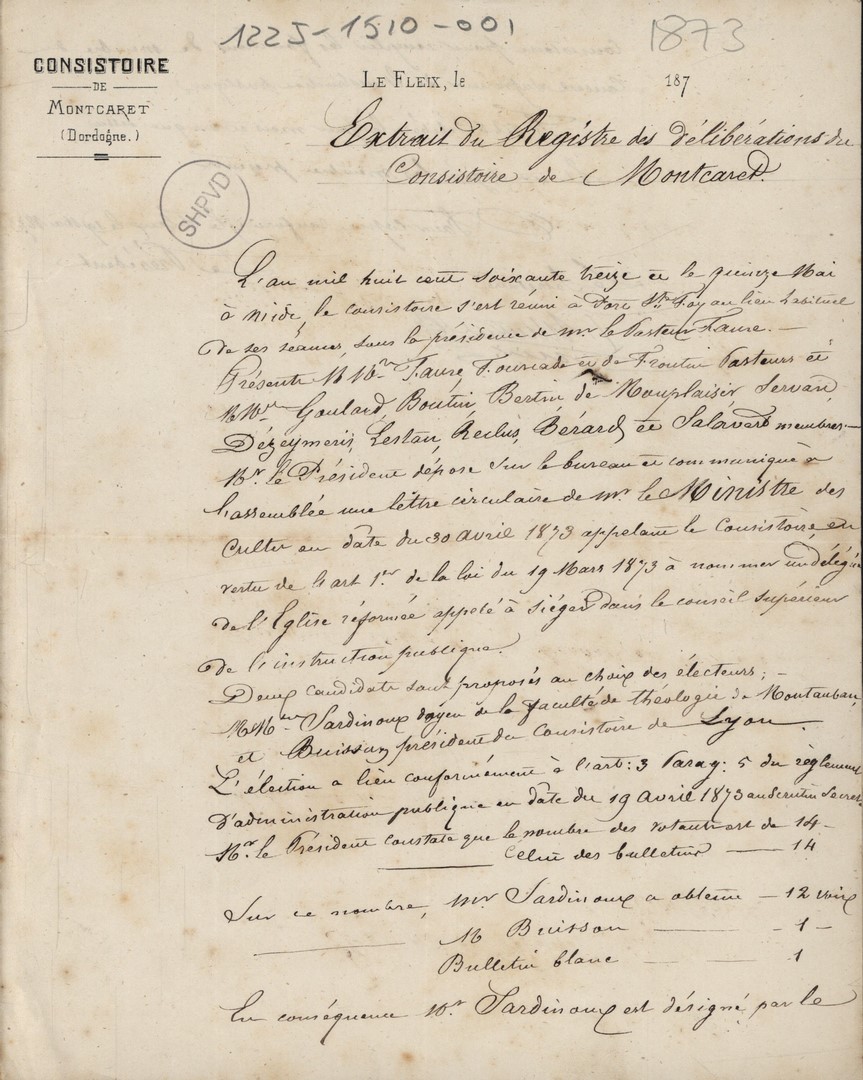 1225-1510-001
1873
CONSISTOIRE
DE
MONTCARET
(Dordogne.)
LE FLEIX, le 187
SHPVD
Extrait du Registre des délibérations du
Consistoire de Montcaret.
L'an mil huit cent soixante treize et le quinze Mai
à midi, le consistoire s'est réuni à Port Ste Foy au lieu habituel
de ses séances, sous la présidence de mr le Pasteur Faure. —
Présents MM Faure, Fourcade et de Froutin Pasteurs et
MM Goulard, Boutin, Bertin de Monplaisir Servan,
Dézeymeris, Lestan, Reclus, Bérard et Salavert membres. —
Mr le Président dépose sur le bureau et communique à
l'assemblée une lettre circulaire de mr le Ministre des
cultes en date du 30 avril 1873 appelant le consistoire, en
vertu de l'art 1er de la loi du 19 Mars 1873 à nommer un délégué
de l'Eglise réformée appelé à siéger dans le conseil supérieur
de l'instruction publique.
Deux candidats sont proposés au choix des électeurs; —
MM Sardinoux doyen de la faculté de théologie de Montauban,
et Buisson président du Consistoire de Lyon.
L'élection a lieu conformément à l'art: 3 Parag: 5 du règlement
D'administration publique en date du 19 avril 1873 au Scrutin Secret.
Mr le Président constate que le nombre des votants est de 14 —
celui des bulletins — 14
Sur ce nombre, mr Sardinoux a obtenu — 12 voix
M Buisson — 1 —
Bulletin blanc — 1
En conséquence Mr Sardinoux est désigné par le